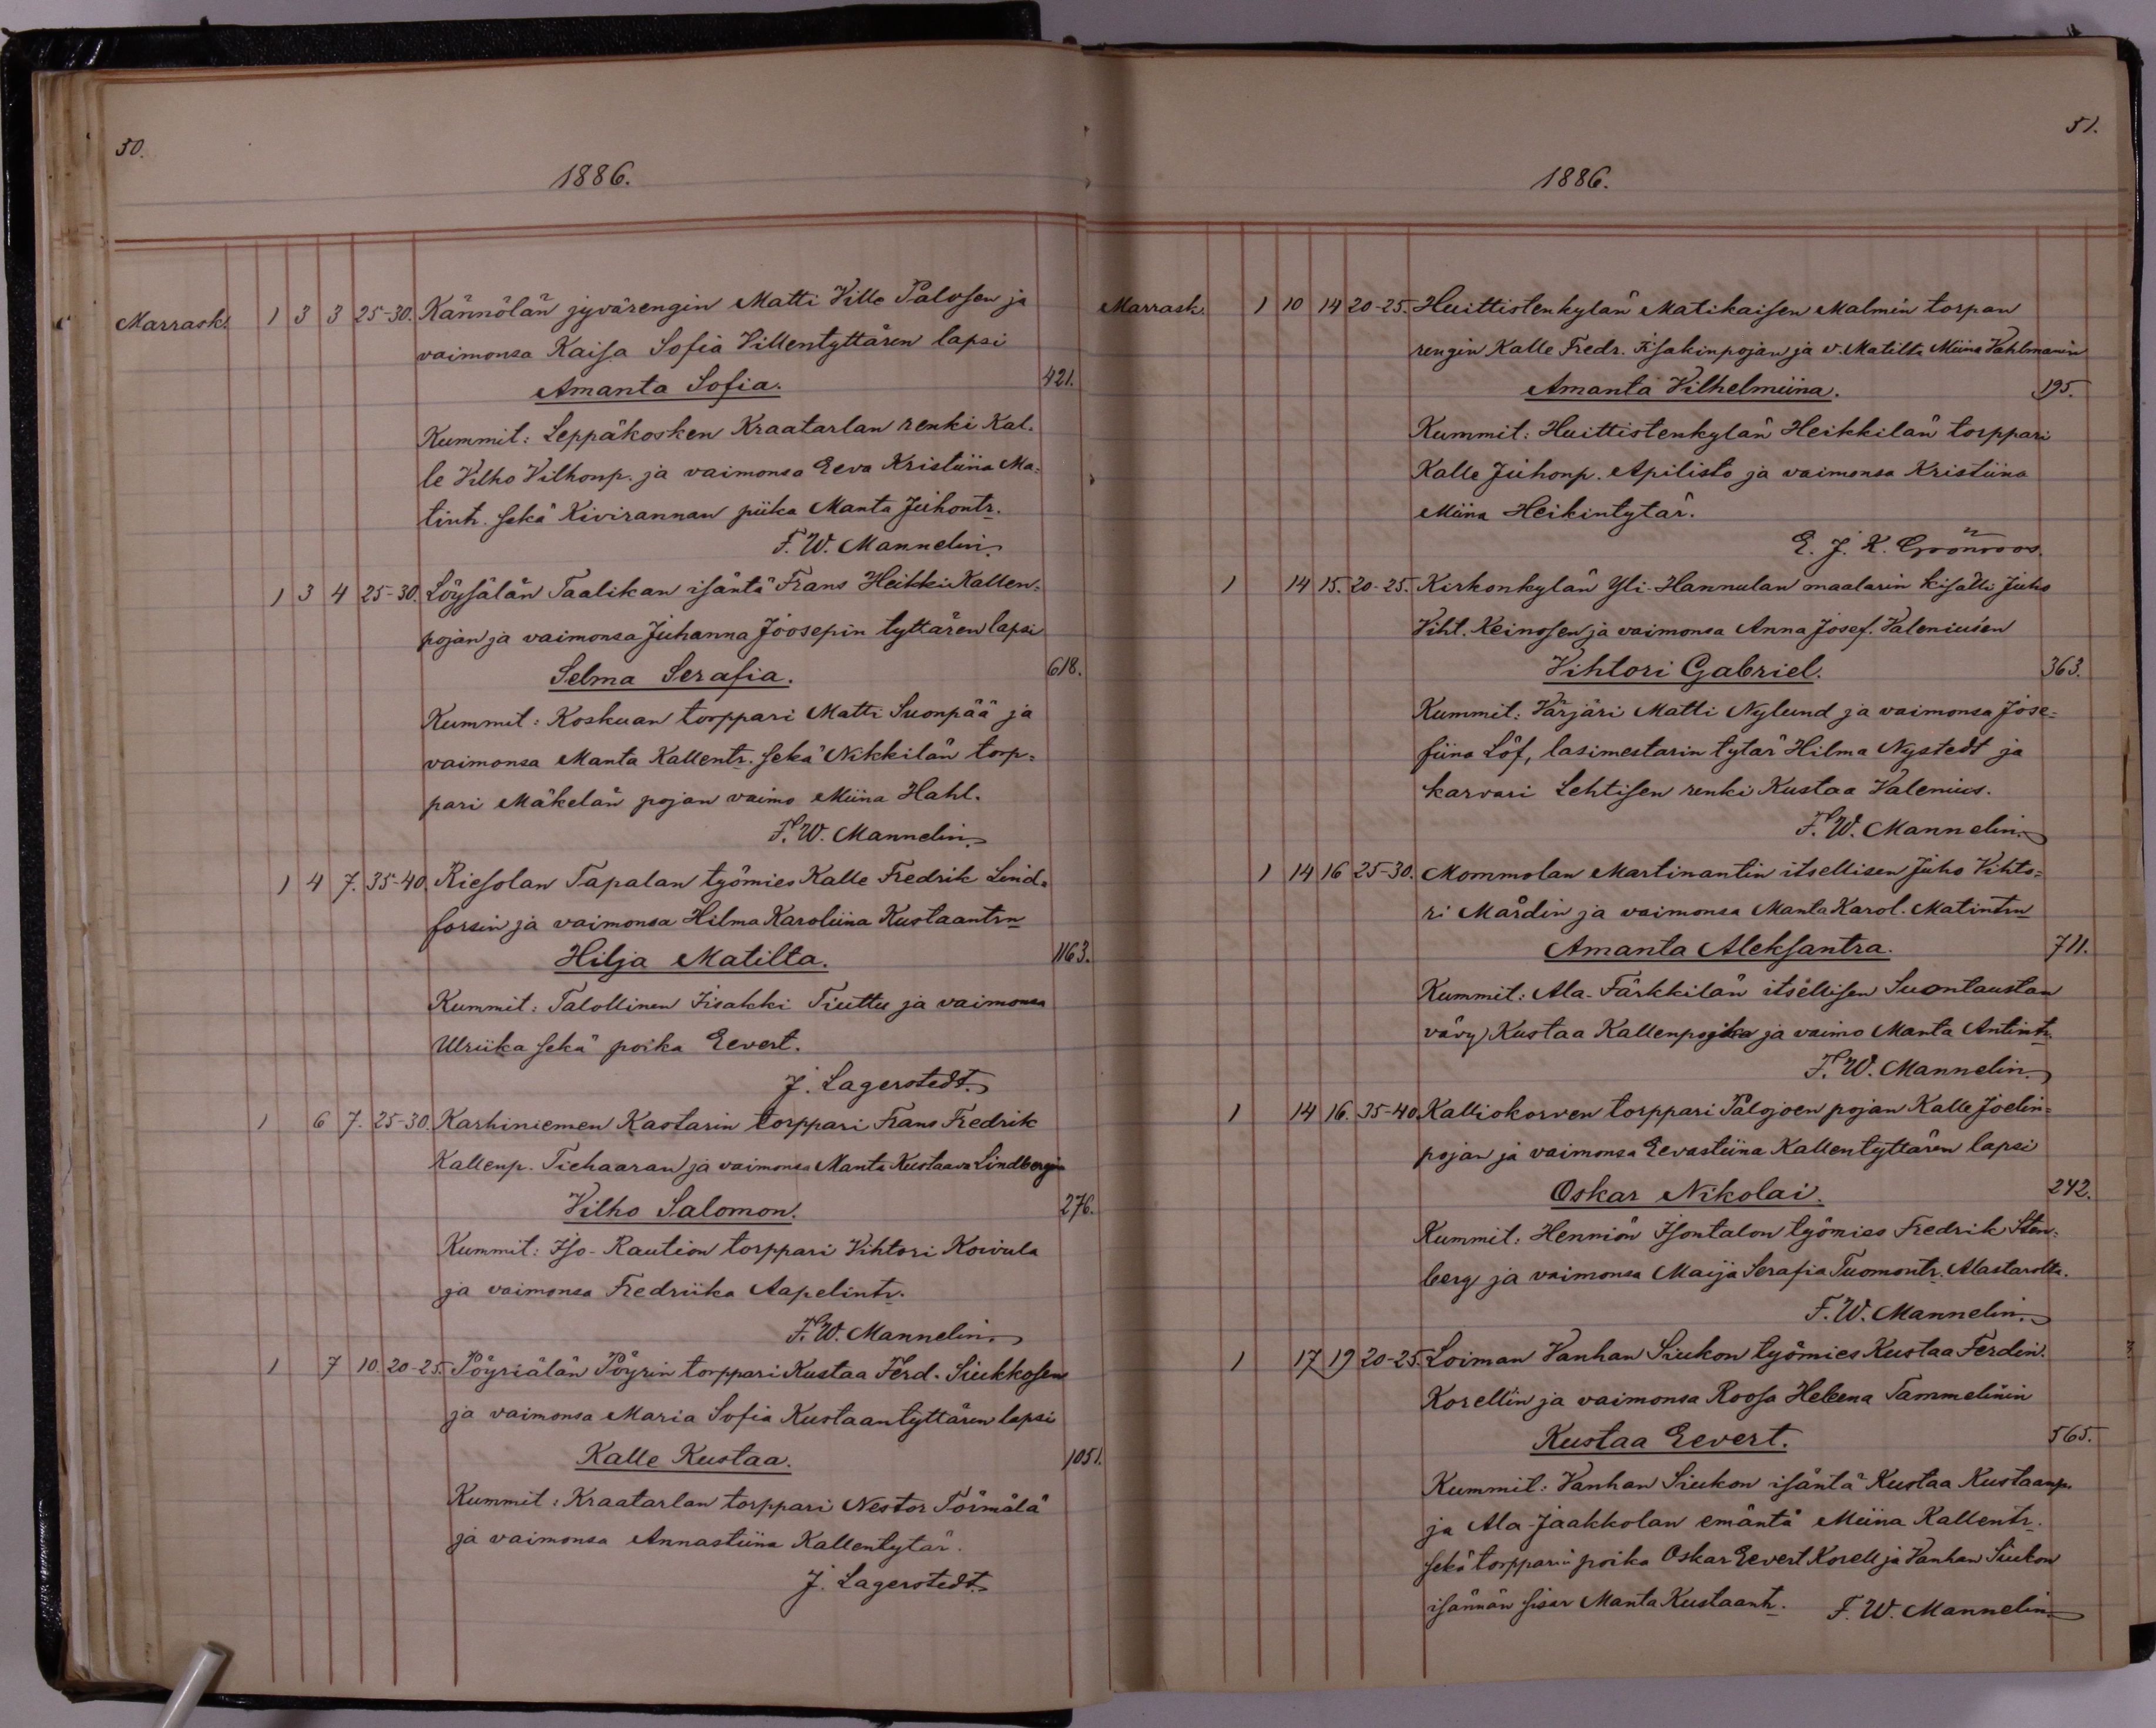 50.
1886.
Marrask. 1 3 3 25-30. Kännölän jyvärengin Matti Ville Palosen ja
vaimonsa Kaisa Sofia Villentyttären lapsi
Amanta Sofia. 421.
Kummit: Leppäkosken Kraatarlan renki Kal-
le Vilho Vilhonp. ja vaimonsa Eeva Kristiina Ma-
tintr. sekä Kivirannan piika Manta Juhontr.
F. W. Mannelin.
1 3 4 25-30. Löysälän Taalikan isäntä Frans Heikki Kallen-
pojan ja vaimonsa Juhanna Joosepin tyttären lapsi
Selma Serafia. 618.
Kummit: Koskuan torppari Matti Suonpää ja
vaimonsa Manta Kallentr. sekä Nikkilän torp-
pari Mäkelän pojan vaimo Miina Hahl.
F. W. Mannelin.
1 4 7. 35-40. Riesolan Tapalan työmies Kalle Fredrik Lind-
forsin ja vaimonsa Hilma Karoliina Kustaantrn
Hilja Matilta. 1163.
Kummit: Talollinen Iisakki Tiuttu ja vaimonsa
Ulriika sekä poika Eevert.
J. Lagerstedt.
1 6 7. 25-30. Karhiniemen Kastarin torppari Frans Fredrik
Kallenp. Tiehaaran ja vaimonsa Manta Kustaava Lindbergin
Vilho Salomon. 276.
Kummit: Iso-Raution torppari Vihtori Koivula
ja vaimonsa Fredriika Aapelintr.
F. W. Mannelin.
1 7 10. 20-25. Pöyriälän Pöyrin torppari Kustaa Ferd. Siukkosen
ja vaimonsa Maria Sofia Kustaantyttären lapsi
Kalle Kustaa. 1051.
Kummit: Kraatarlan torppari Nestor Törmälä
ja vaimonsa Annastiina Kallentytär.
J. Lagerstedt.
51.
1886.
Marrask. 1 10 14 20-25. Huittistenkylän Matikaisen Malmin torpan
rengin Kalle Fredr. Iisakinpojan ja v. Matilta Miina Vahlmanin
Amanta Vilhelmiina. 195.
Kummit: Huittistenkylän Heikkilän torppari
Kalle Juhonp. Apilisto ja vaimonsa Kristiina
Miina Heikintytär.
E. J. K. Grönroos.
1 14 15. 20-25. Kirkonkylän Yli-Hannulan maalarin kisälli Juho
Viht. Keinosen ja vaimonsa Anna Josef. Valeniusen
Vihtori Gabriel. 363.
Kummit: Värjäri Matti Nylund ja vaimonsa Jose-
fiina Löf, lasimestarin tytär Hilma Nystedt ja
karvari Lehtisen renki Kustaa Valenius.
F. W. Mannelin.
1 14 16 25-30. Mommolan Martinantin itsellisen Juho Vihto-
ri Mårdin ja vaimonsa Manta Karol. Matintrn
Amanta Aleksantra. 711.
Kummit: Ala-Färkkilän itsellisen Suontaustan
vävy Kustaa Kallenpoika ja vaimo Manta Antintr.
F. W. Mannelin.
1 14 16. 35-40. Kalliokorven torppari Palojoen pojan Kalle Joelin-
pojan ja vaimonsa Eevastiina Kallentyttären lapsi
Oskar Nikolai. 242.
Kummit: Henniön Isontalon työmies Fredrik Sten-
berg ja vaimonsa Maija Serafia Tuomontr. Alastarolta.
F. W. Mannelin.
1 17 19 20-25. Loiman Vanhan Siukon työmies Kustaa Ferdin.
Korellin ja vaimonsa Roosa Heleena Tammelinin
Kustaa Eevert. 565.
Kummit: Vanhan Siukon isäntä Kustaa Kustaanp.
ja Ala-Jaakkolan emäntä Miina Kallentr.
sekä torpparin poika Oskar Eevert Korell ja Vanhan Siukon
isännän sisar Manta Kustaantr. F. W. Mannelin.